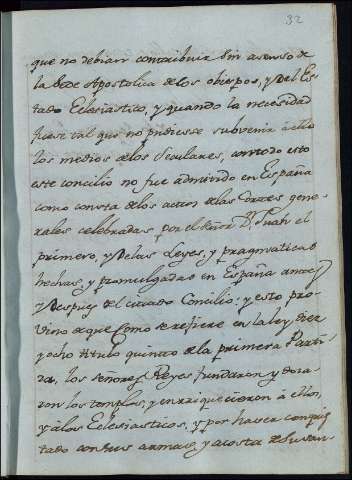 32
que no debian contribuir sin asenso de
la Sede Apostolica de los obispos, y del Es-
tado Eclesiastico, y quando la necesidad
fuese tal que no pudiese subvenir à ello
los medios de los Seculares, con todo esto
este concilio no fue admitido en España
como consta de los actos de las Cortes gene-
rales celebradas por el señor D. Juan el
primero, y de las Leyes, y pragmaticas
hechas, y promulgadas en España antes
y despues del citado Concilio; y esto pro-
vino de que como se refiere en la ley diez
y ocho titulo quinto de la primera Parti-
da, los señores Reyes fundaron y dota-
ron los templos, y enrriquecieron à ellos,
y a los Eclesiasticos, y por haver conquis-
tado con sus armas, y a costa de su san-